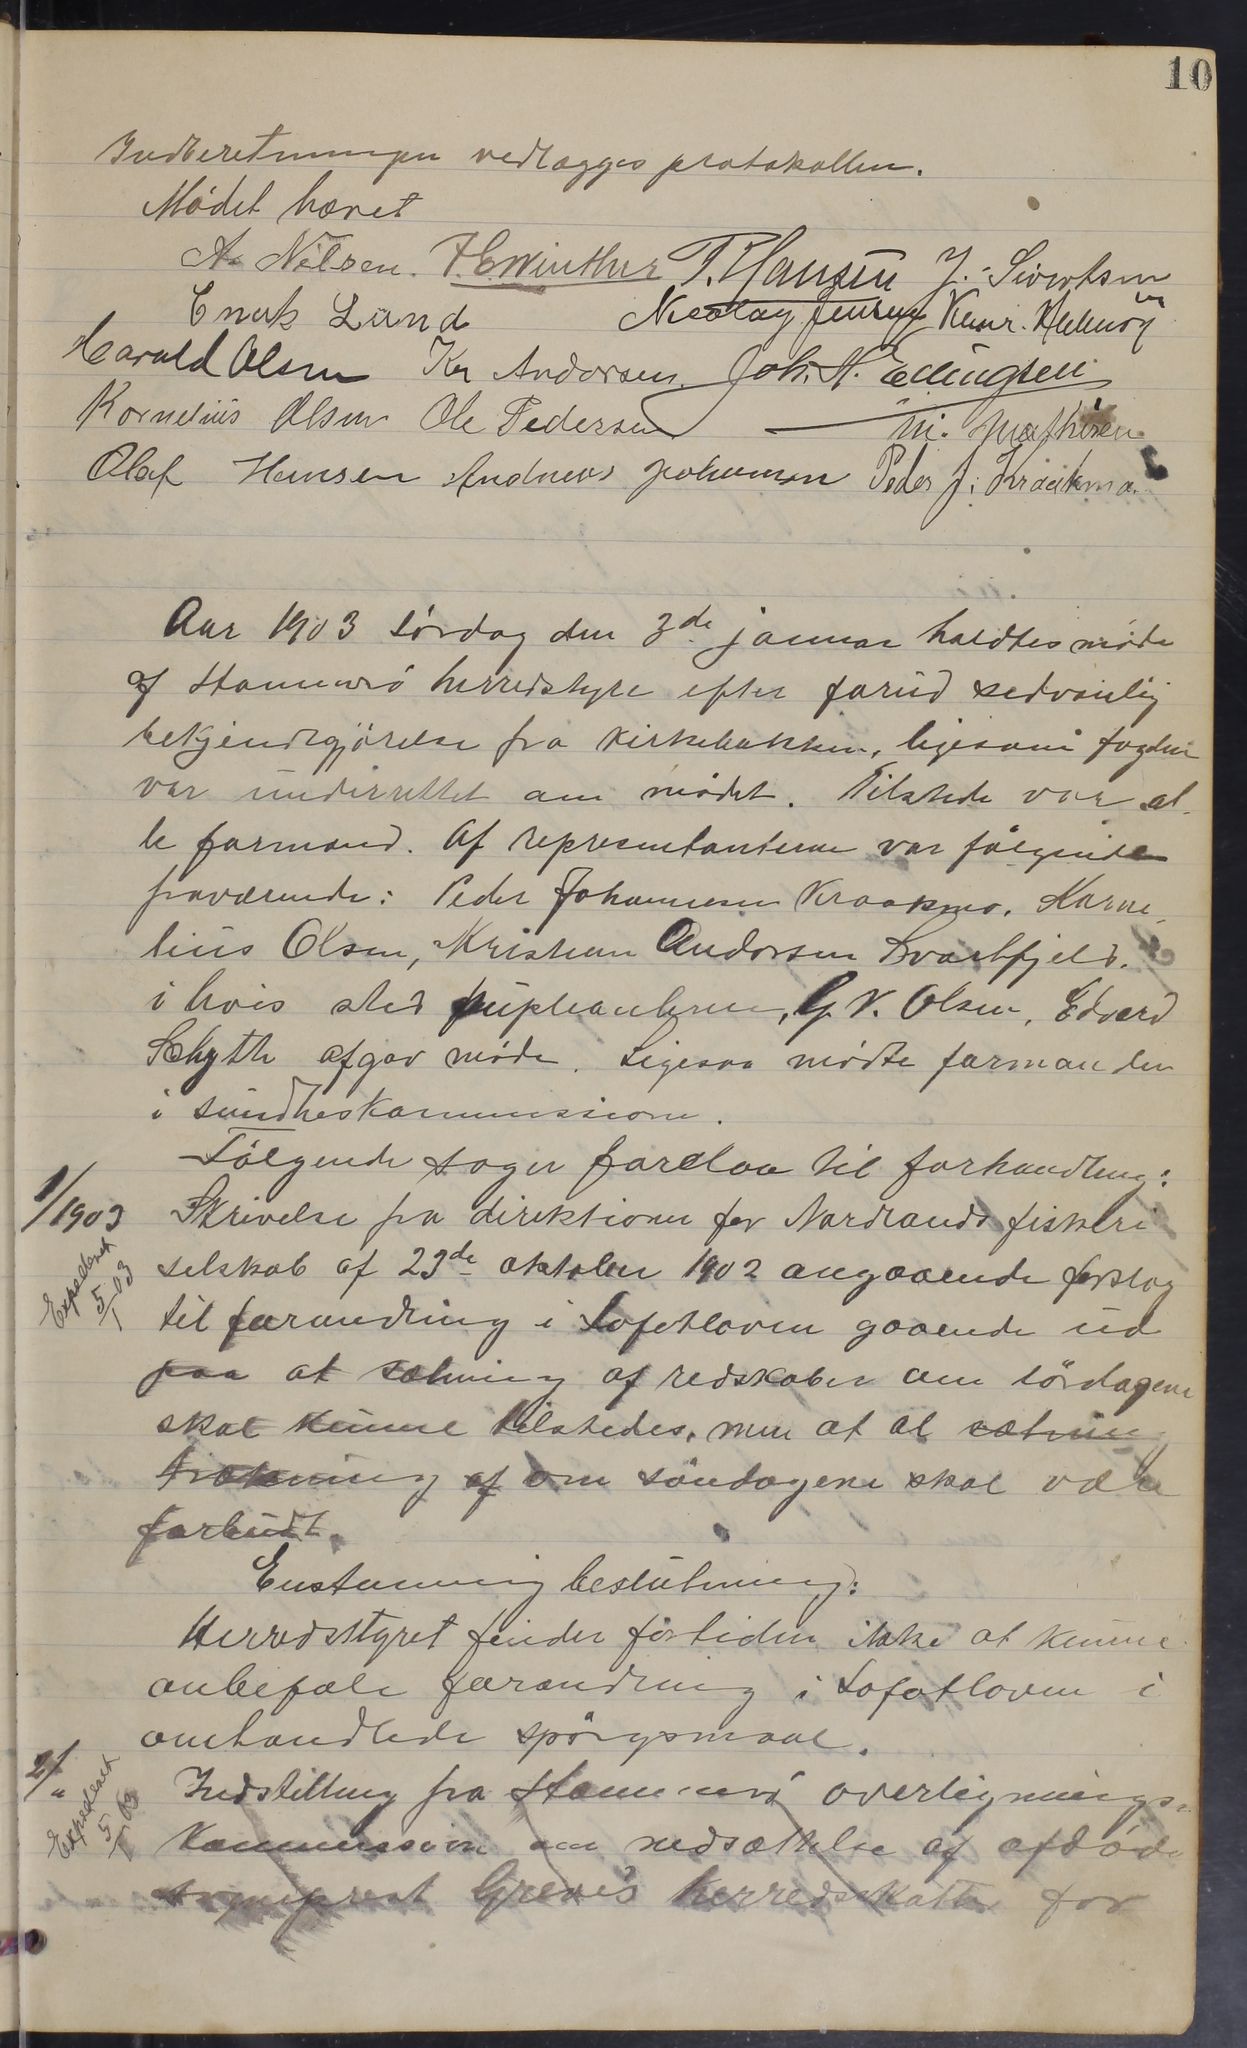 10
Indberetningen vedlægges protokollen.
Mødet hævet
A. Nilsen. H. E. Winther P. Hansen J. Sivertsen
Enok Lund Nicolay Jensen Konr.
Harald Olsen Kr Andorsen. Joh. H. Ellingsen
Kornelius Olsen Ole Pedersen M. Mathisen
Olaf Hansen Andreas Johansen Peder J. Kraakmo.
Aar 1903 lørdag den 3de januar holdtes møde
af Stamnes herredstyre efter forud sedvanlig
bekjendtgjørelse fra kirkebakken, ligesom fogden
var underrettet om mødet. Tilstede var al-
le formænd. Af representanterne var følgende
fraværende: Peder Johannesen Kraakmo. Korne-
lius Olsen, Kristian Andorsen Svartfjeld.
i hvis sted supleanterne, G. K. Olsen, Edvard
Schytte afgav møde. Ligesaa mødte formanden
i sundheskommissionen.
Følgende sager forelaa til forhandling:
1/1903 Skrivelse fra direktionen for Nordlands fiskeri
Expedert 5/1 03
selskab af 23de oktober 1902 angaaende forslag
til forandring i Lofotloven gaaende ud
paa at sætning af redskaber om lørdagene
skal kunne tilstedes, men at al sætning
trækning af om søndagene skal være
forbudt.
Enstemmig beslutning:
Herredsstyret finder førtiden ikke at kunne
anbefale forandring i Lofotloven i
omhandlede spørgsmaal.
2/" Indstilling fra overlignings-
Expedert 5/1 03
kommission om nedsættelse af afdøde
sogneprest Greve's herredsskatter for